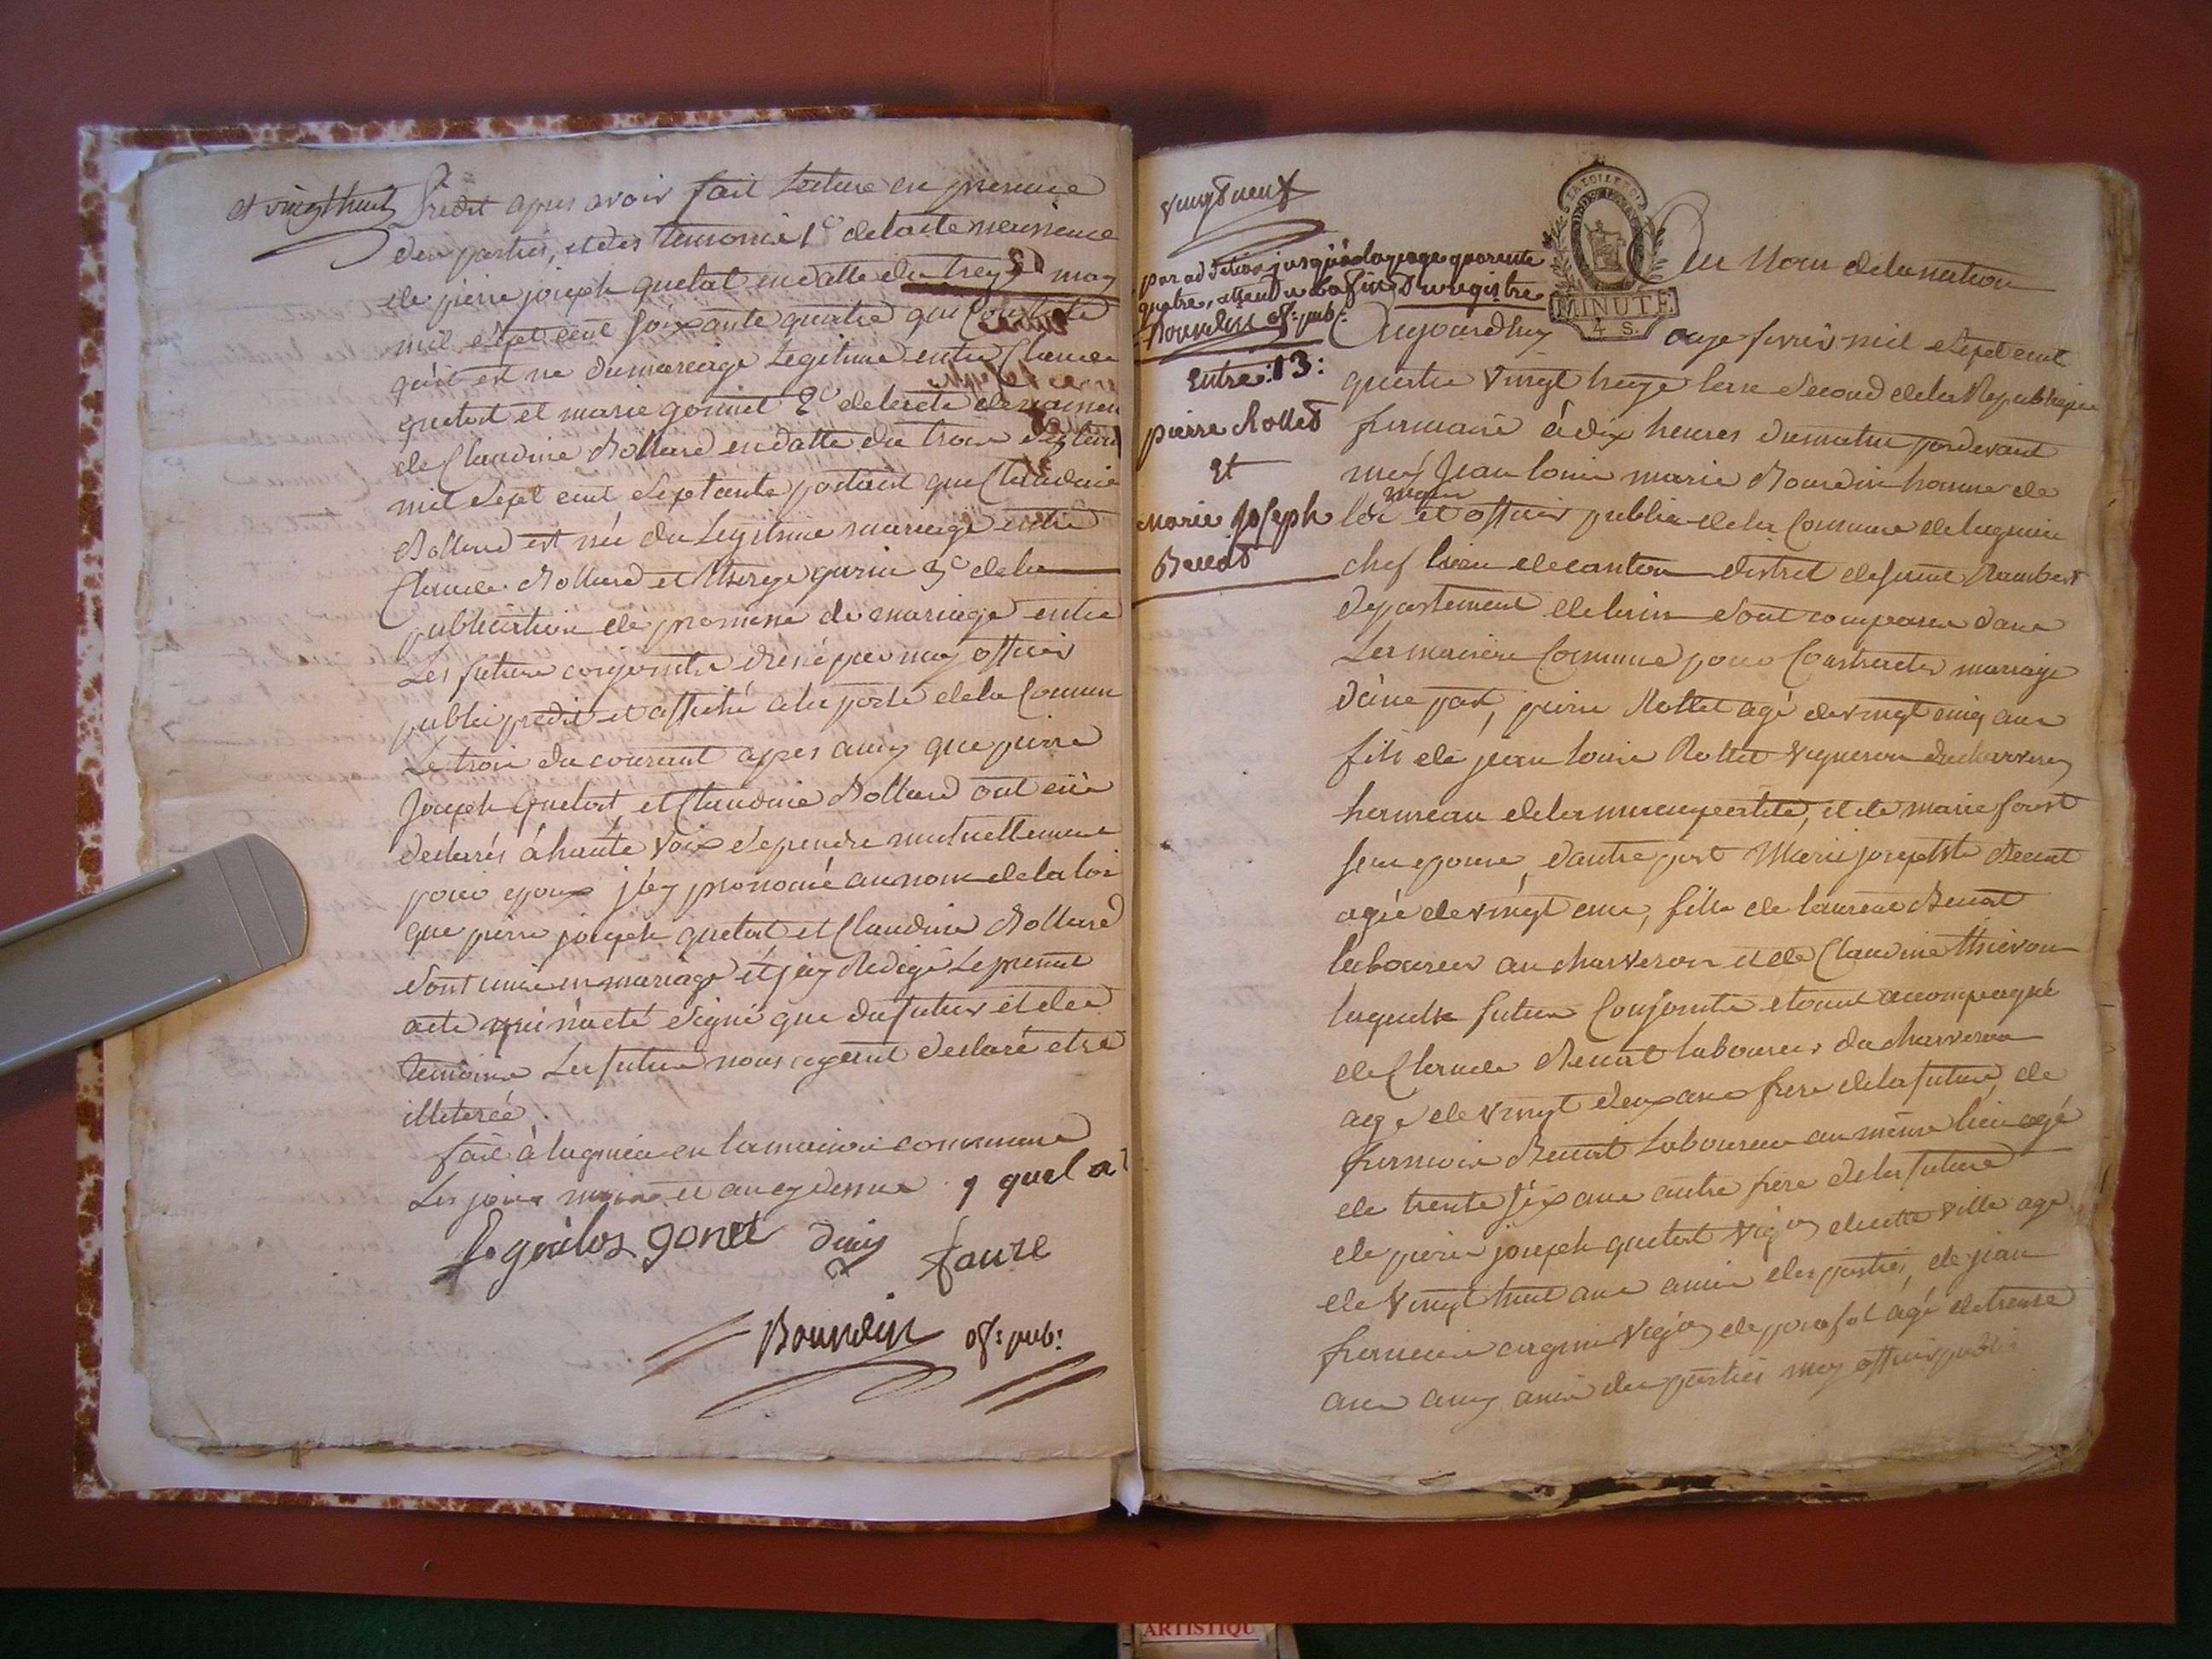 et vingt huit
predit apres avoir fait lecture en presence
des parties, et des temoins 1º de lacte naissance
de pierre joseph quelat en datte du treyze may
mil sept cent soixante quatre qui
qu'il est ne du mariage legitime entre Claude
quelat et marie gonnet 2º de lacte de naissan
de Claudine Rollard en datte du trois
mil sept cent septante portant que Claudine
Rollard est née du legitime mariage entre
Claude Rollard et gurin 3º de la
publication de promesse de mariage entre
Les futurs conjoints dressé par moy officier
public predit et affiché a la porte de la Commun
Le trois du courant apres aussy que pierre
joseph quelat et Claudine Rollard ont eüe
declarés à haute voix se prendre mutuellement
pour epoux j'ay prononcé au nom de la loi
que pierre joseph quelat et Claudine Rollard
sont unis en mariage et j'ay Redigé Le present
acte qui n'a eté signé que du futur et des
temoins La future nous ayant declaré etre
illeterée.
fait à lagnieu en la maison commune
Les jours mois et an cy dessus
quelat
gonet
denis
faure
Bourdin of: pub:
vingt neuf
par adition jusqu'à la page quarente
quatre, attendu la fin du registre
Bourdin of: pub:
MINUTE
4 S.
Au Nom de la nation
Entre: 13:
pierre Rollet
Et
marie Joseph
Benat
Aujourdhuy onze fevrier mil sept cent
quatre vingt treize lan second de la Republique
francaise à dix heures du matin pardevant
moy Jean louis marie Bourdin homme de
loi et officier public de la Commune de lagnieu
chef lieu de canton district de saint Rambert
departement de lain sont comparus dans
La maison Commune pour Contracter mariage
d'une part, pierre Rollet agé de vingt cinq ans
fils de jean louis Rollet vigneron du charveron
hameau de la municipalité, et de marie
son epouse, d'autre part Marie josephte Benat
agée de vingt ans, fille de laurent Benat
laboureur au charveron et de Claudine thievon
laquelle futurs Conjoints etant accompagné
de Claude Benat laboureur du charveron
agé de vingt deux ans frere de la future, de
francois Benat Laboureur au même lieu agé
de trente six ans autre frere de la future
de pierre joseph quelat de cette ville agé
de vingt huit ans amis des parties, de jean
francois de agé de trente
ans aussy amis des parties moy officier public